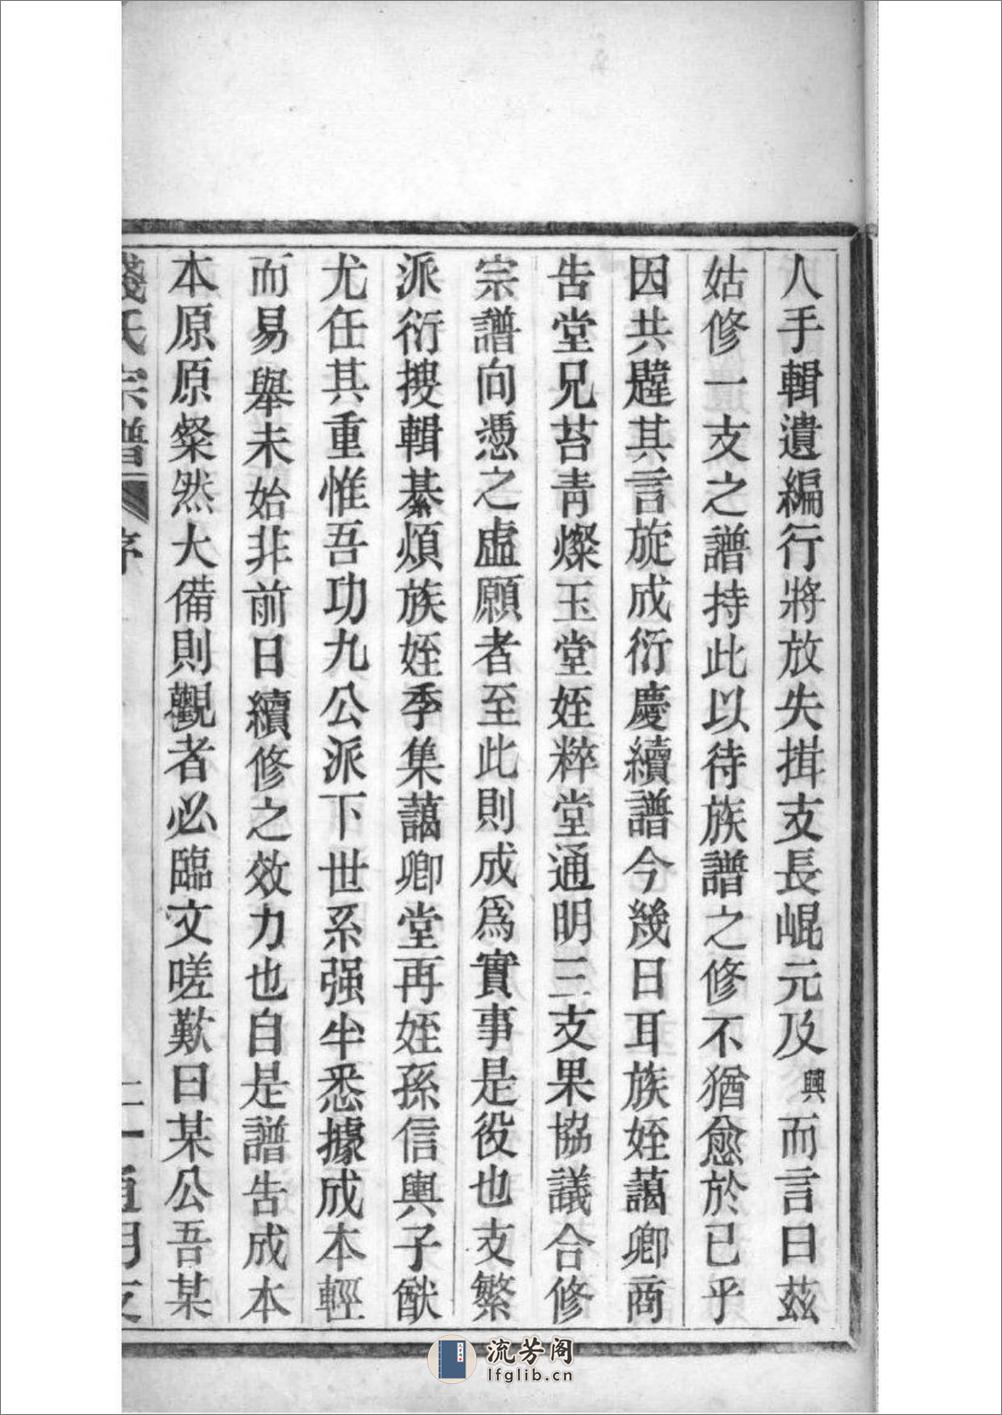 人手輯遺編行將放失揖支長崐元及興而言曰茲
姑修一支之譜持此以待族譜之修不猶愈於已乎
因共韙其言旋成衍慶續譜今幾日耳族姪藹卿商
告堂兄苔青燦玉堂姪粹堂通明三支果協議合修
宗譜向憑之虛願者至此則成爲實事是役也支繁
派衍搜輯綦煩族姪季集藹卿堂再姪孫信輿子猷
尤任其重惟吾功九公派下世系强半悉據成本輕
而易舉未始非前日續修之效力也自是譜告成本
本原原粲然大備則觀者必臨文嗟歎曰某公吾某
錢氏宗譜 序 二 通明支
流芳阁
lfglib.cn